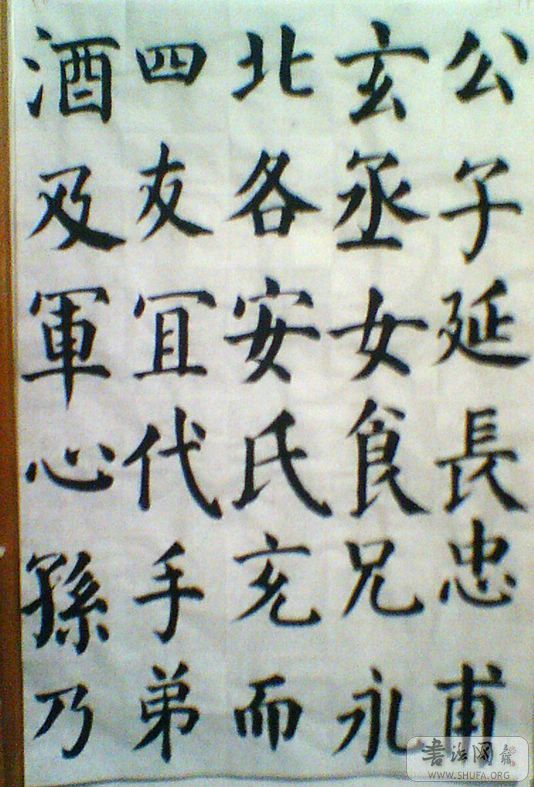 公子延長忠甫
玄丞女食兄永
北各安氏充而
四友冝代手弟
酒及軍心孫乃
书法网
WWW.SHUFA.ORG